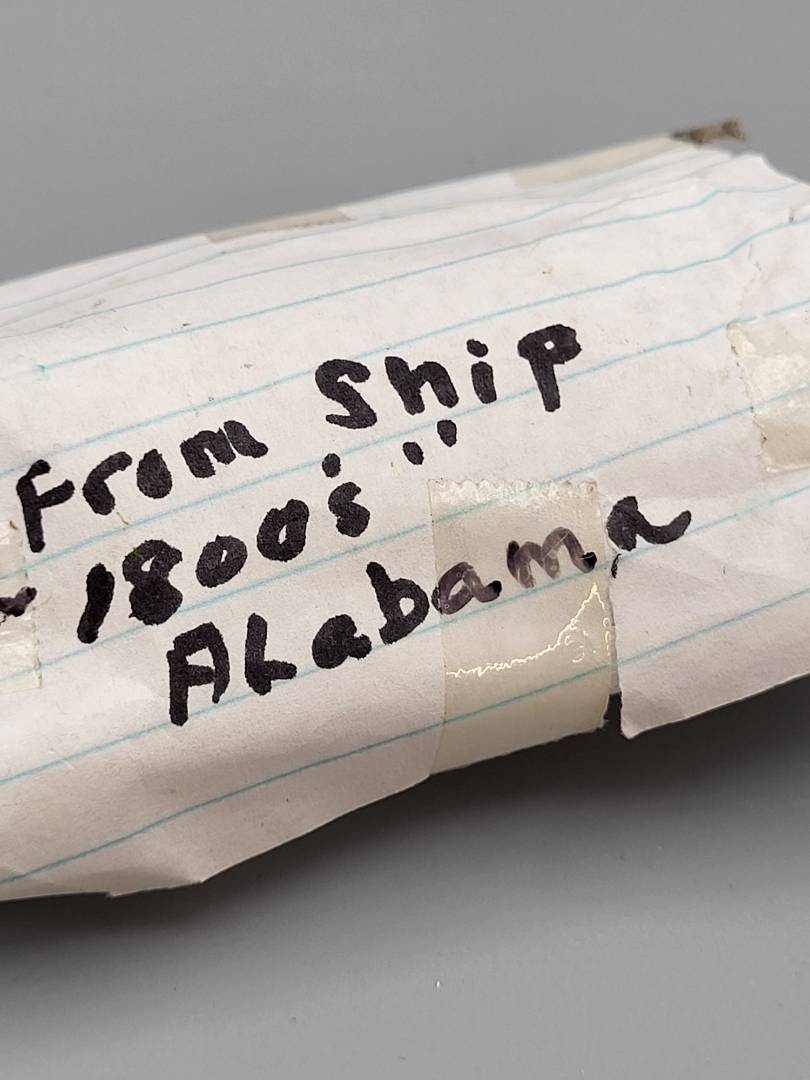 From Ship
1800's "
Alabama